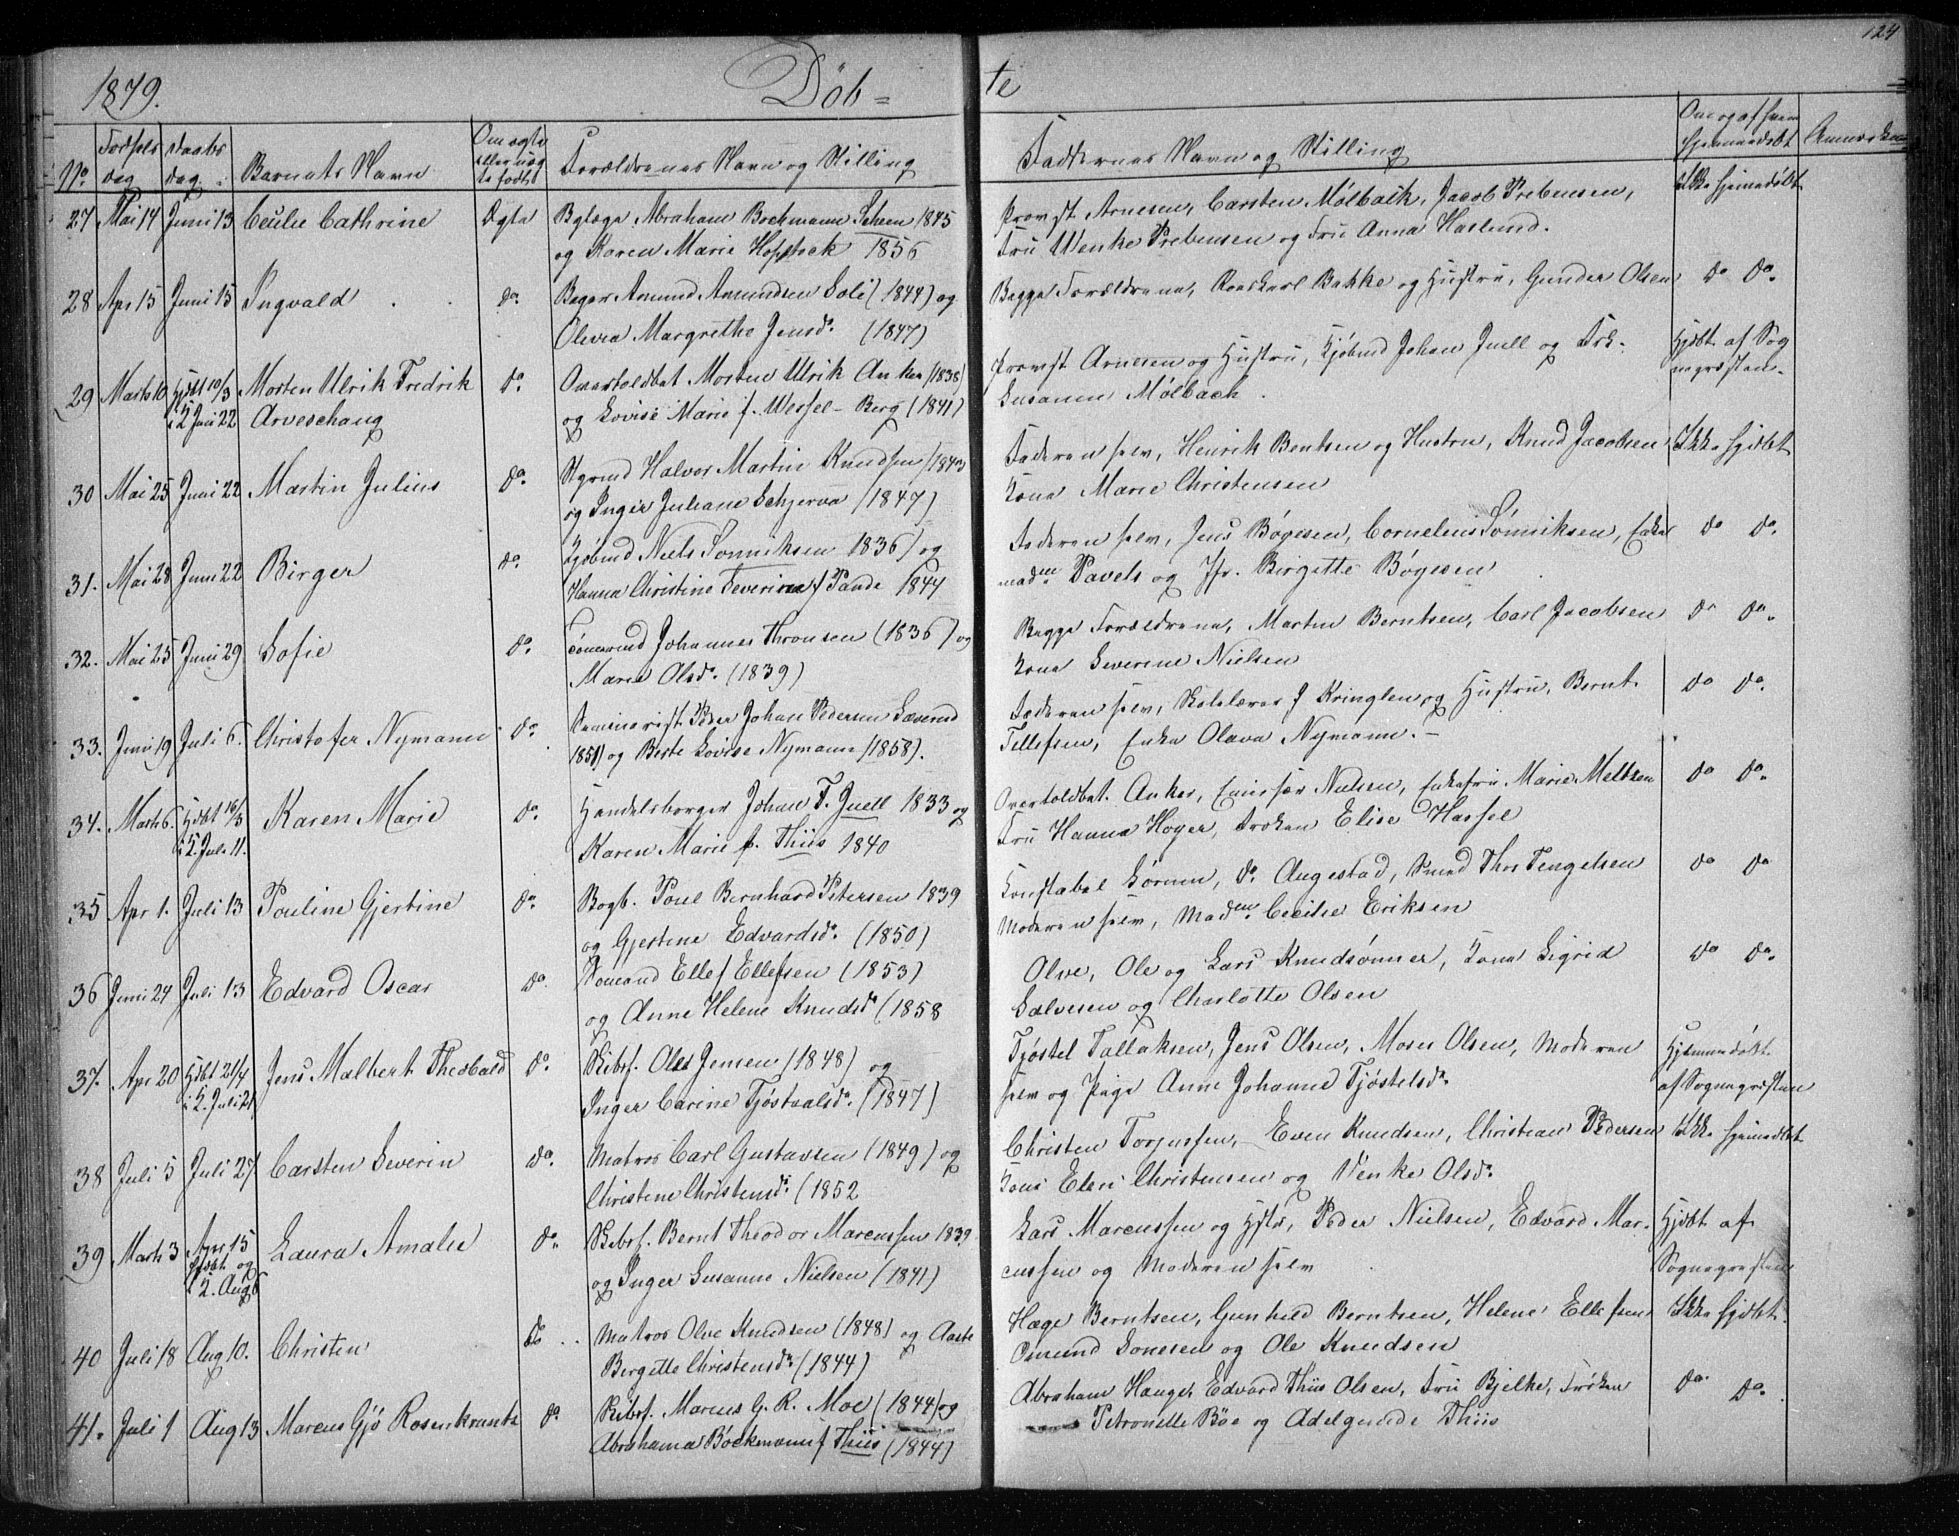 124
1879. Døb= te
No Fødsels dag Daabs dag Barnets Navn Om ægte eller uæg te født Forældrenes Navn og Stilling Faddernes Navn og Stilling Om og af hvem hjemmedøbt Anmærkn
27 Mai 14 Juni 13 Cecilie Cathrine Ægte Bylæge Abraham Bochmann Scheen 1845 Provst Arnesen, Carsten Mølbach, Jacob Prebensen, Ikke hjemmedøbt
og Karen Marie Hopstock 1856 Fru Wenke Prebensen og Fru Anna Haslund.
28 Apr 15 Juni 15 Ingvald do. Bager Amund Amundsen Solli (1844) og Begge Forældrene, Bakke og Hustru, Gunder Olsen do do.
Olevia Margrethe Jensd. (1847)
29 Marts 10 Hjdbt 10/3 Morten Ulrik Fredrik do Overtoldbet Morten Ulrik Anker (1838) Provst Arnesen og Hustru, Kjøbmd Johan Juell og Frk. Hjdbt af Sog
i K Juni 22 Arveschoug og Lovise Marie f. Wessel-Berg (1841) Susanne Mølbach. nepræsten.
30 Mai 25 Juni 22 Martin Julius do. Styrmd Halvor Martin Knudsen (1843 Faderen selv, Henrik Bentsen og Hustru, Knud Jacobsen Ikke hjdbt
og Inger Juliane Schjerva (1847) Kone Marie Christensen
31. Mai 28 Juni 22 Birger do. Kjøbmd Niels Sønniksen 1836) og Faderen selv, Jens Bøgesen, Cornelius Sønniksen, Enke do do.
Hanna Christine Severine f Pande 1844 madm Pavels og Jfr. Birgitte Bøgesen
32. Mai 25 Juni 29 Sofie do. Tømmermd Johannes Thronsen (1836) og Begge Forældrene, Morten Berntsen, Carl Jacobsen do do.
Maren Olsd. (1839) Kone Severine Nielsen
33. Juni 19 Juli 6. Christofer Nymann do. Seminarist Peder Johan Pedersen Løvsund Faderen selv, Skolelærer J Kringlen og Hustru, Bernt do do.
1851) og Berte Lovise Nymann (1858). Tellefsen, Enke Olava Nymann.-
34. Marts 6. Hjdbt 16/3 Karen Marie do. Handelsborger Johan F. Juell 1833 og Overtoldbet. Anker, Emissær Nielsen, Enkefru Marie Meltzen do do.
i K. Juli 11. Karen Marie f. Thiis 1840 Fru Hanna Høyer, Frøken Elise Hassel
35 Apr 1. Juli 13 Pouline Gjertine do. Bogb. Poul Bernhard Petersen 1839 Konstabel Sørum, do. Augestad, Smed Thor Tengelsen do do
og Gjertine Edvardsd. (1850) Moderen selv, Madm Cecilie Eriksen
36 Juni 24 Juli 13 Edvard Oscar do. Sømand Ellef Ellefsen (1853) Olve, Ole og Lars Knudsønner, Kone Sigrid do do.
og Anne Helene Knudsd (1858 Salvesen og Charlotte Olsen
37. Apr 20 Hjdbt 21/4 Jens Malbert Theobald do. Skibsf. Ole Jensen (1848) og Tjøstel Tallaksen, Jens Olsen, Moses Olsen, Moderen Hjemmedøbt
i K. Juli 21 Inger Carine Tjøstaalsd. (1847) selv og Pige Anne Johanne Tjøstelsd. af Sognepræsten
38 Juli 5 Juli 27 Carsten Severin do. Matros Carl Gustavsen (1849) og Christen Torjussen, Even Knudsen, Christian Pedersen Ikke hjemmedbt
Christine Christensd. (1852 Kone Elen Christensen og Venke Olsd.
39 Marts 3 Apr 15 Laura Amalie do. Skibsf. Bernt Theodor Marcussen 1839 Lars Marcussen og Hstr, Peder Nielsen, Edvard Mar- Hjdbt af
hjdbt og
i K. Aug 6 og Inger Susanne Nielsen (1841) cussen og Moderen selv Sognepræsten
40 Juli 18 Aug 10. Christen do Matros Olve Knudsen (1848) og Aaste Hæge Berntsen, Gunhild Berntsen, Helene Ellefsen Ikke hjdbt.
Birgitte Christensd. (1844) Omund Sonesen og Ole Knudsen
41. Juli 1 Aug 13 Marcus Gjø Rosenkrantz do. Skibsf. Marcus G. R. Moe (1844) og Abraham Hauge, Edvard Thiis Olsen, Fru Bjelke, Frøken do. do.
Abrahama Bockmann f Thiis (1844) Petronelle Bøe og Adelgunde Thiis